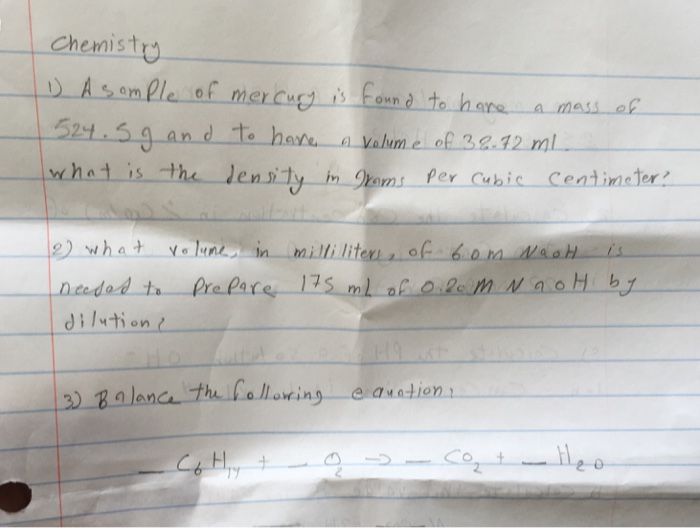 Chemistry
1) A sample of mercury is found to have a mass of
524.5 g and to have a volume of 38.72 ml.
what is the density in grams per cubic centimeter?
2) what volume, in milliliters, of 6.0 m NaoH is
needed to prepare 175 ml of 0.20 M NaoH by
dilution?
3) Balance the following equation:
_ C6H14 + _ O2 → _ CO2 + _ H2O